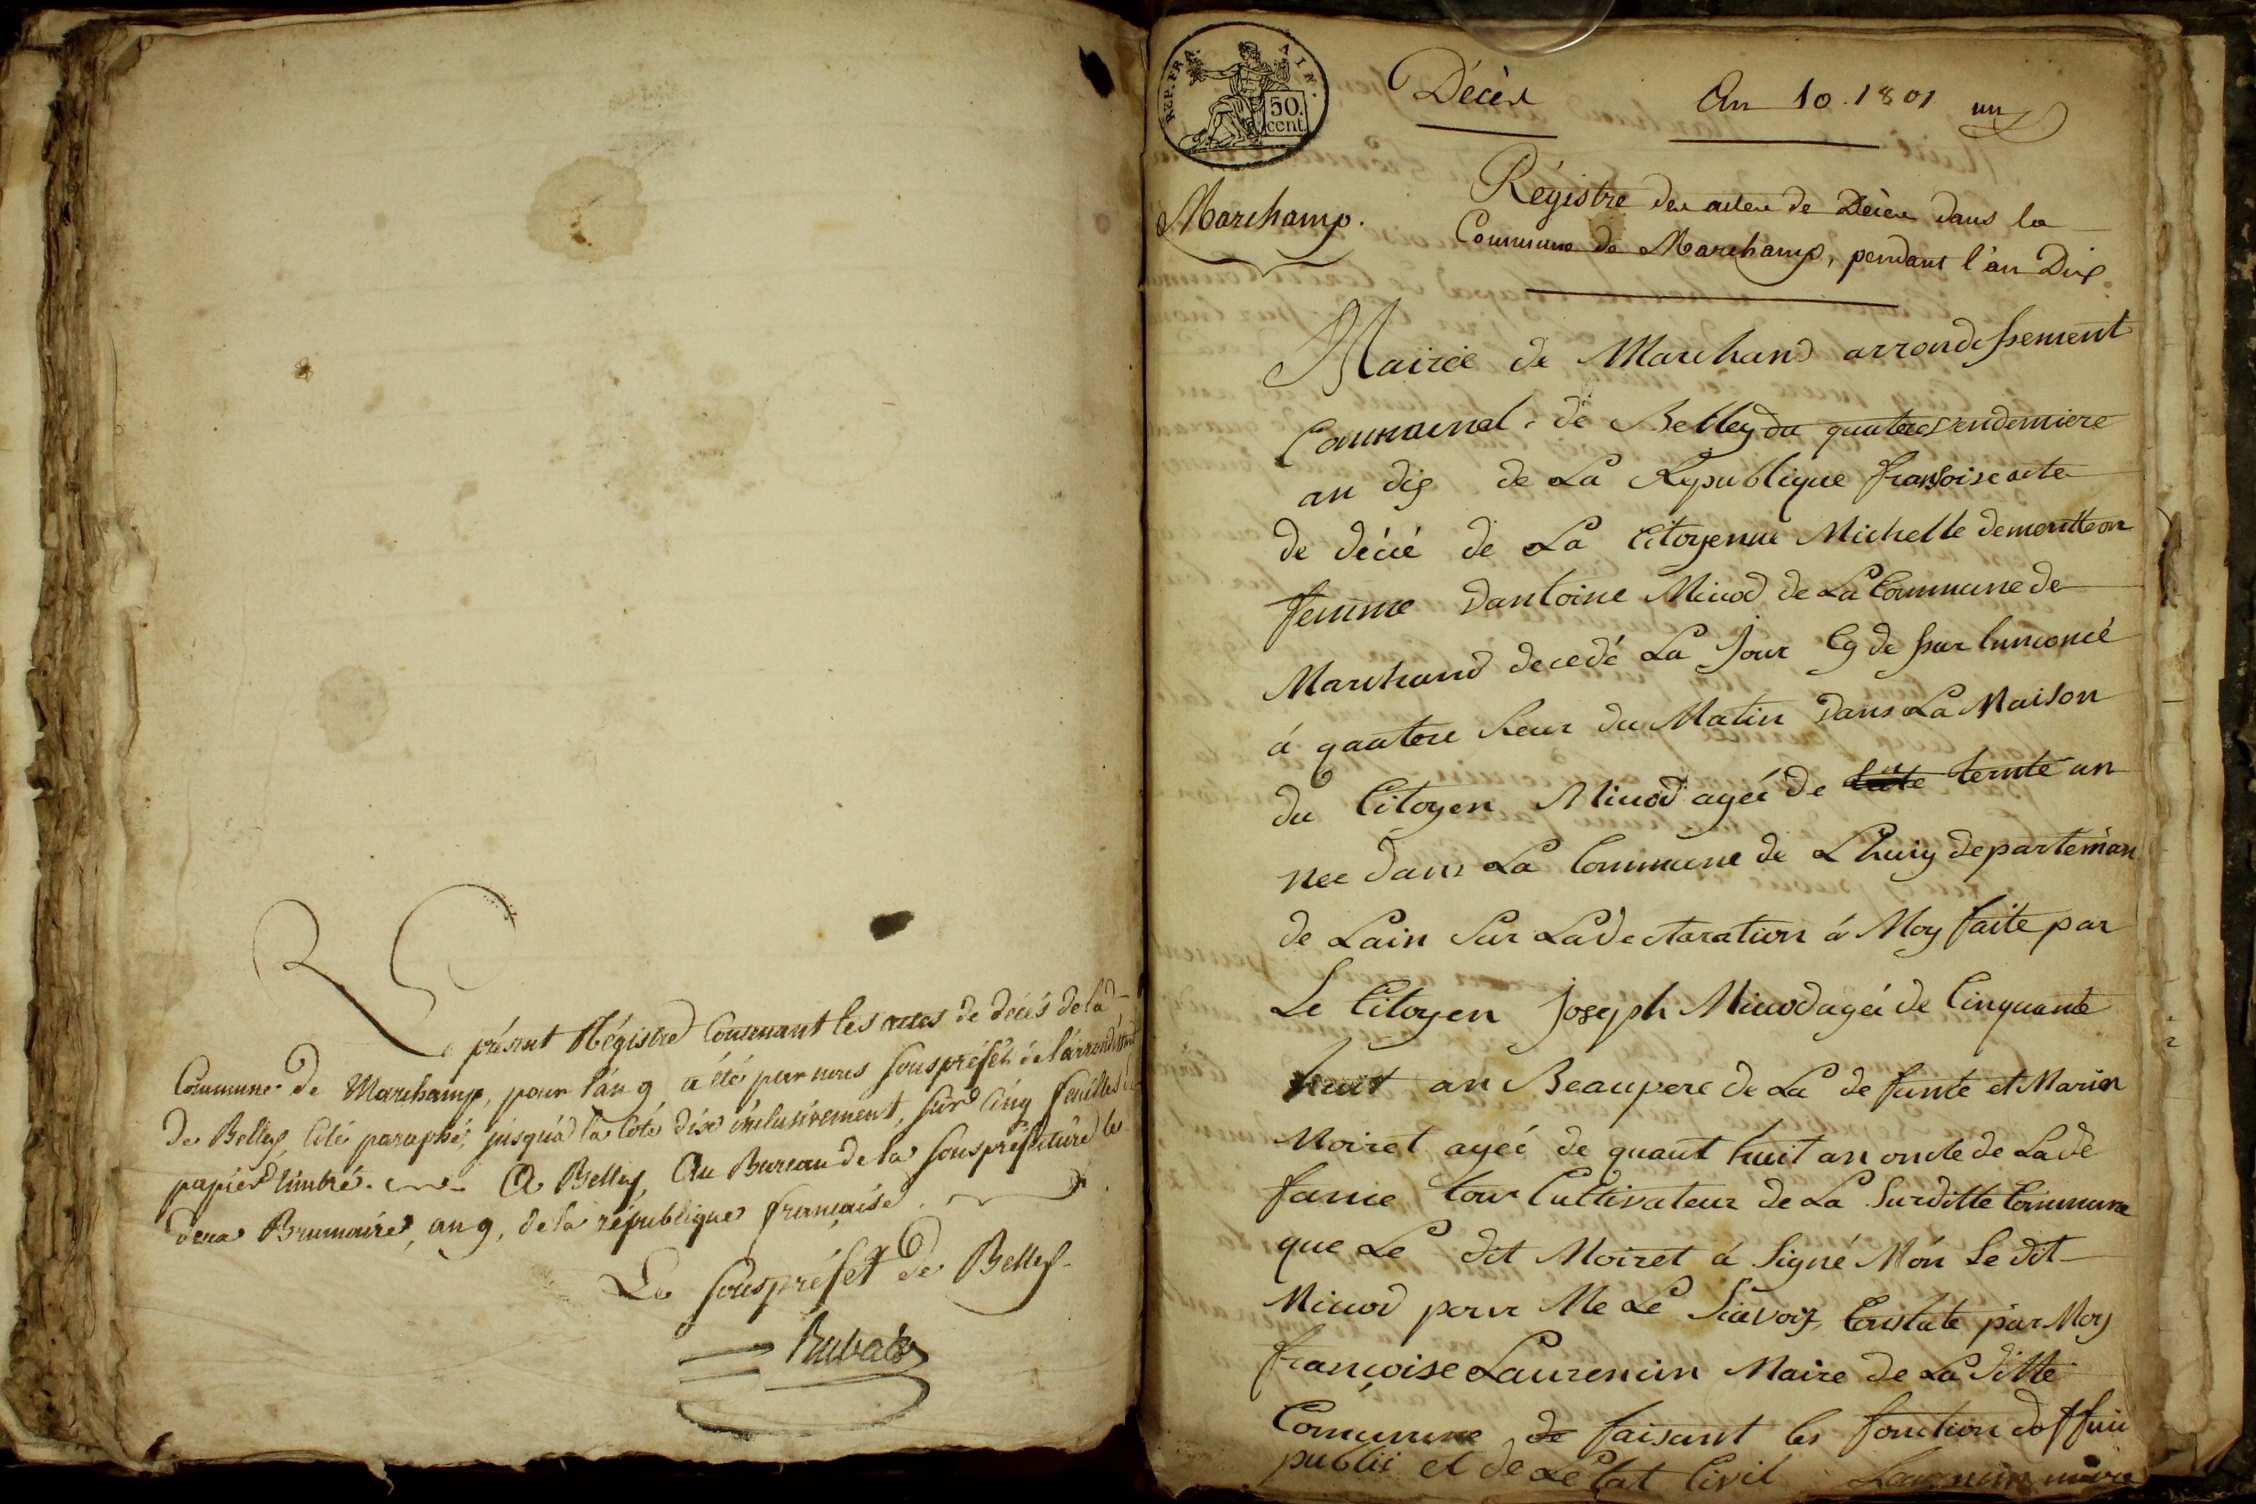 Le présent Régistre Contenant les actes de décès de la
Commune de Marchamp, pour l'an 9 a été par nous souspréfet de l'arrondissmt
de Belley, coté paraphé, jusqu'à la cote dix inclusivement, sur cinq feuilles de
papier timbré. A Belley, Au Bureau de la souspréfecture le
deux Brumaire, an 9, de la république française.
Le souspréfet de Belley.
Rubat
REP. FRA. AIN.
50. cent.
Décès An 10. 1801 un
Marchamp.
Régistre des actes de Décès dans la
Commune de Marchamp, pendant l'an Dix
Mairie de Marchand arrondissement
Communal de Belley du quatere vendemiere
an dis de La Republique fransoise acte
de décié de La Citoyenne Michelle demontteon
femme dantoine Micod de La Commune de
Marchand decedé La Jour Cy de surEnnoncé
á quatere heur du Matin dans La Maison
du Citoyen Micod ageé de ternte an
nee dans La Commune de Lhuiy departeman
de Lain Sur La declaration á Moy faite par
Le Citoyen Joseph Micod ageé de Cinquante
huit an Beaupere de La de funte et Marion
Moiret ageé de quant huit an oncle de La de
fame tous Cultivateur de La Surditte Commune
que Le dit Moiret á Signé Món Le dit
Micod pour Ne Le Sçavoir, Constate par Moy
françoise Laurencin Maire de La ditte
Commune de faisant les fonction dofficié
publié et de LeEtat Civil Laurencin maire